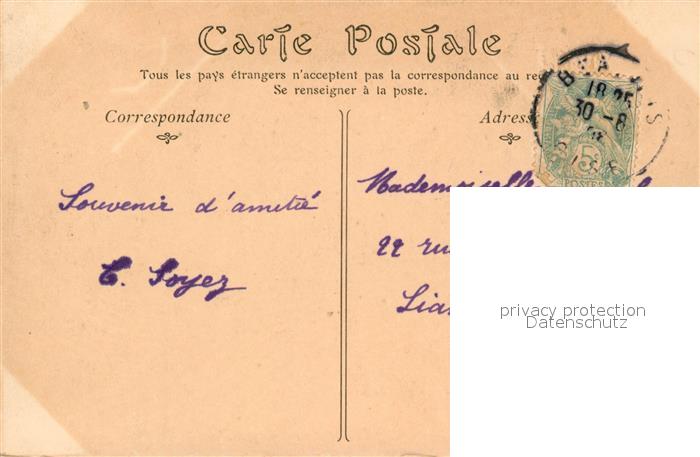 Carte Postale
Tous les pays étrangers n'acceptent pas la correspondance au
Se renseigner à la poste.
Correspondance
Souvenir d'amitié
Soyez
18
30-8
5
POSTES
Mademoiselle
22
privacy protection
Datenschutz